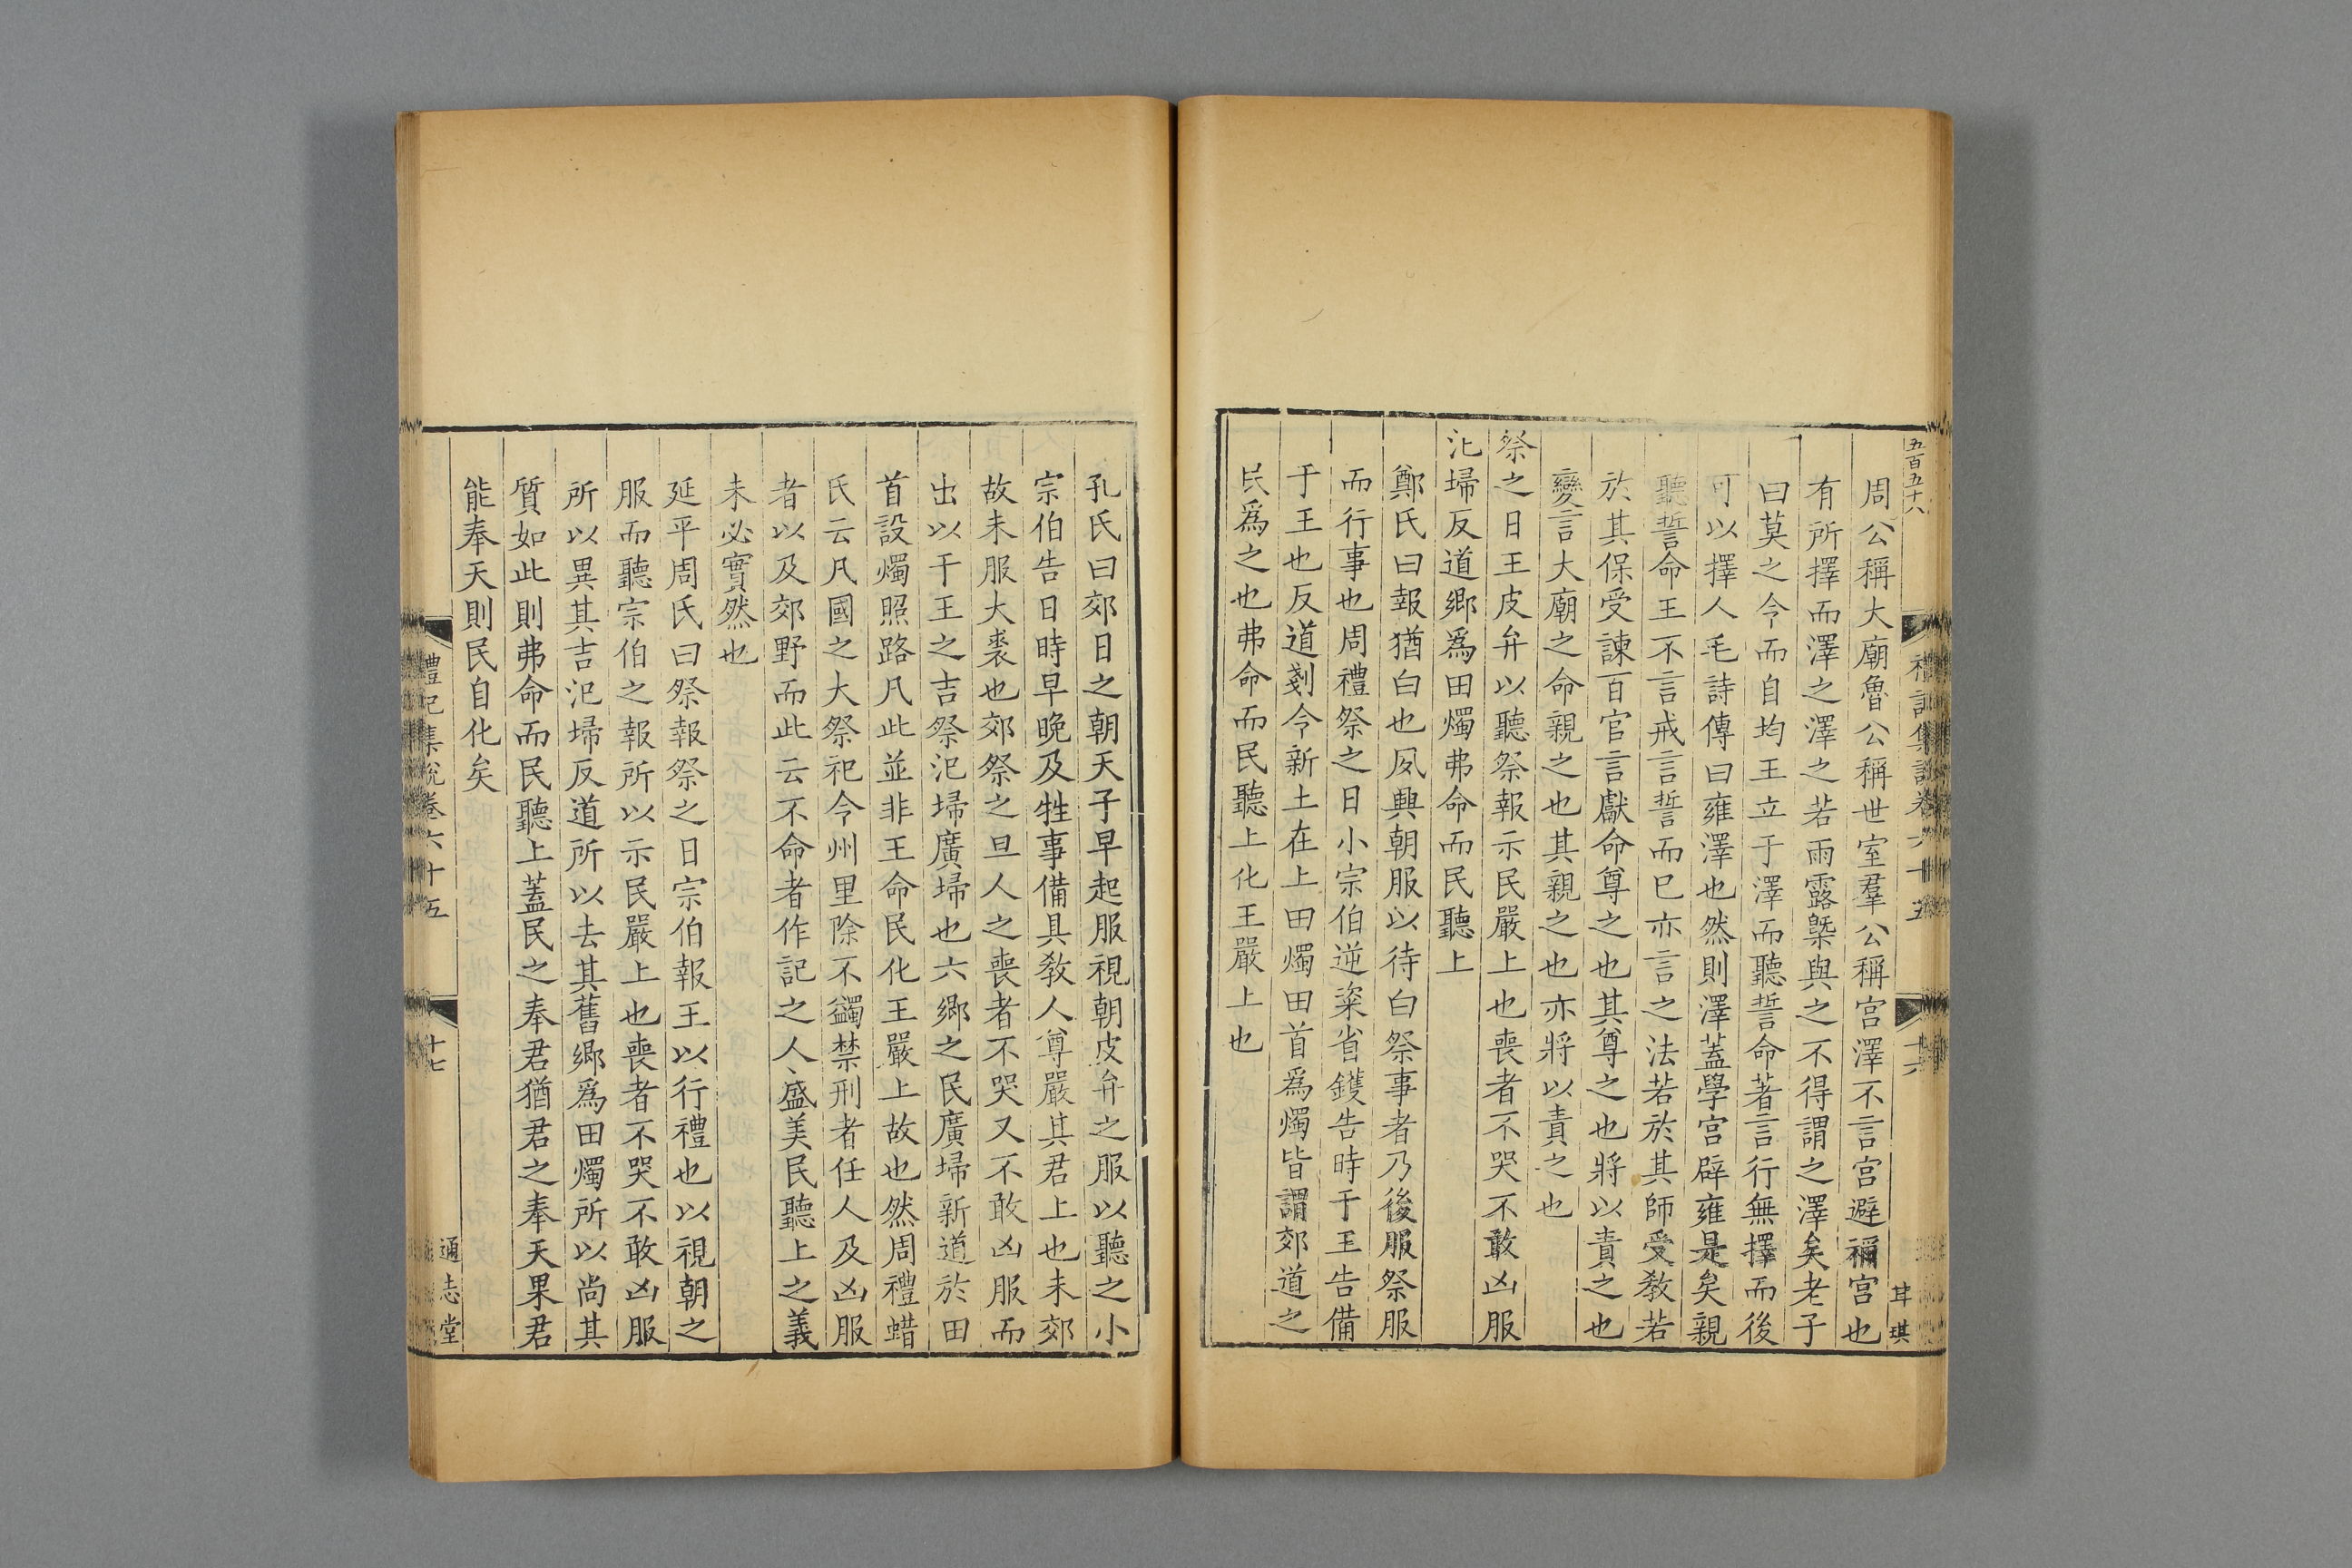 五百五十六
禮記集說卷六十五
十六
甘琪
周公稱大廟魯公稱世室羣公稱宫澤不言宫避禰宫也
有所擇而澤之澤之若雨露槩與之不得謂之澤矣老子
曰莫之令而自均王立于澤而聽誓命著言行無擇而後
可以擇人毛詩傳曰雍澤也然則澤蓋學宫辟雍是矣親
聽誓命王不言戒言誓而已亦言之法若於其師受敎若
於其保受諫百官言獻命尊之也其尊之也將以責之也
變言大廟之命親之也其親之也亦將以責之也
祭之日王皮弁以聽祭報示民嚴上也喪者不哭不敢凶服
氾埽反道鄉爲田燭弗命而民聽上
鄭氏曰報猶白也夙興朝服以待白祭事者乃後服祭服
而行事也周禮祭之日小宗伯逆粢省鑊告時于王告備
于王也反道剗令新土在上田燭田首爲燭皆謂郊道之
民爲之也弗命而民聽上化王嚴上也
孔氏曰郊日之朝天子早起服視朝皮弁之服以聽之小
宗伯告日時早晚及牲事備具敎人尊嚴其君上也未郊
故未服大裘也郊祭之旦人之喪者不哭又不敢凶服而
出以干王之吉祭氾埽廣埽也六鄉之民廣埽新道於田
首設燭照路凡此並非王命民化王嚴上故也然周禮蜡
氏云凡國之大祭祀令州里除不蠲禁刑者任人及凶服
者以及郊野而此云不命者作記之人盛美民聽上之義
未必實然也
延平周氏曰祭報祭之日宗伯報王以行禮也以視朝之
服而聽宗伯之報所以示民嚴上也喪者不哭不敢凶服
所以異其吉氾埽反道所以去其舊鄉爲田燭所以尚其
質如此則弗命而民聽上蓋民之奉君猶君之奉天果君
能奉天則民自化矣
禮記集說卷六十五
十七
通志堂